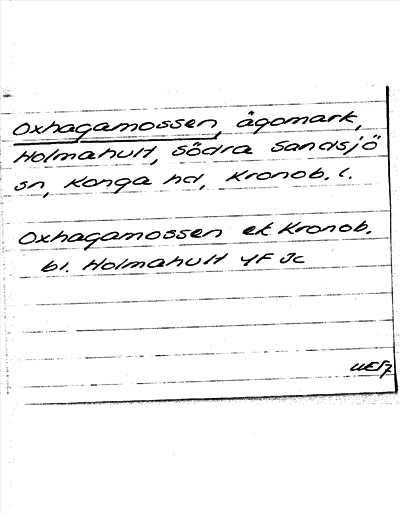 Oxhagamossen, ägomark,
Holmahult, Södra Sandsjö
sn, Konga hd, Kronob. l.
Oxhagamossen ek Kronob.
bl. Holmahult 4F Jc